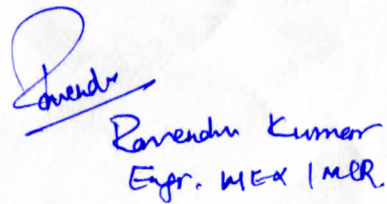 Ravendra
Ravendra Kumar
Engr. MEX / MLR.